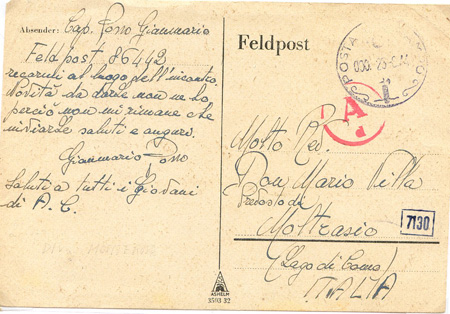 Absender: Cap. Posso Gianmario
Feldpost 86442
recarmi al luogo dell'incontro.
Novità da darle non ne ho
perciò non mi rimane che
inviarle saluti e auguri.
Gianmario Posso
Saluti a tutti i giovani
di A. C.
Feldpost
POSTA
A
d
Molto Rev.
Don Mario Villa
Prevosto di
Moltrasio
(Lago di Como)
ITALIA
7130
ASHELM
3503 32